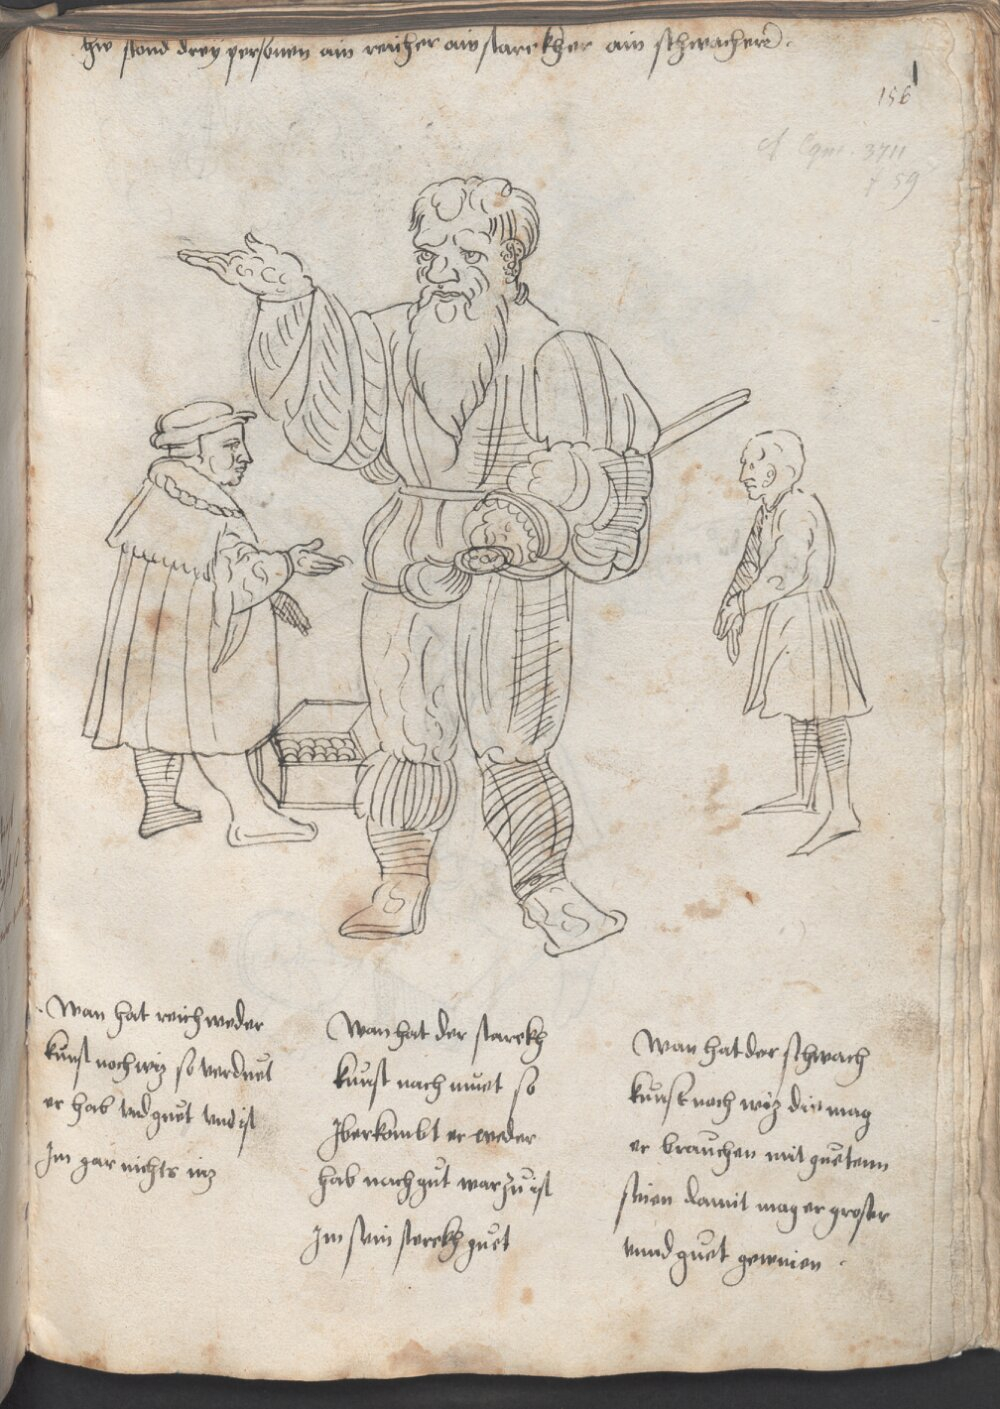 hie stond drey personen ain reicher ain starckher ain schwacherr.
156
cf Cgm. 3711
f 59
Wan hat reich weder
kunst noch wiz so verduet
er hab und guet und ist
Im gar nichts niz
Wan hat der starckh
kunst nach muet so
Iberkombt er weder
hab nach gut warzu ist
Im sein sterckh guet
Wan hat der schwach
kunst noch wiz die mag
er brauchen mit guetem
sinen damit mag er groser
unnd guet gewinen.